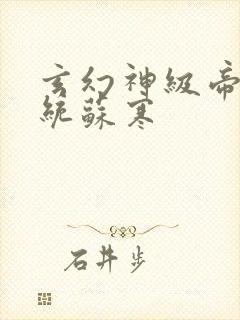 玄幻神級帝
統蘇寒
石井步